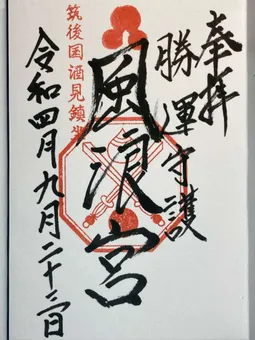 奉拝
勝運守護
風浪宮
筑後国酒見鎮座
令和四年九月二十三日